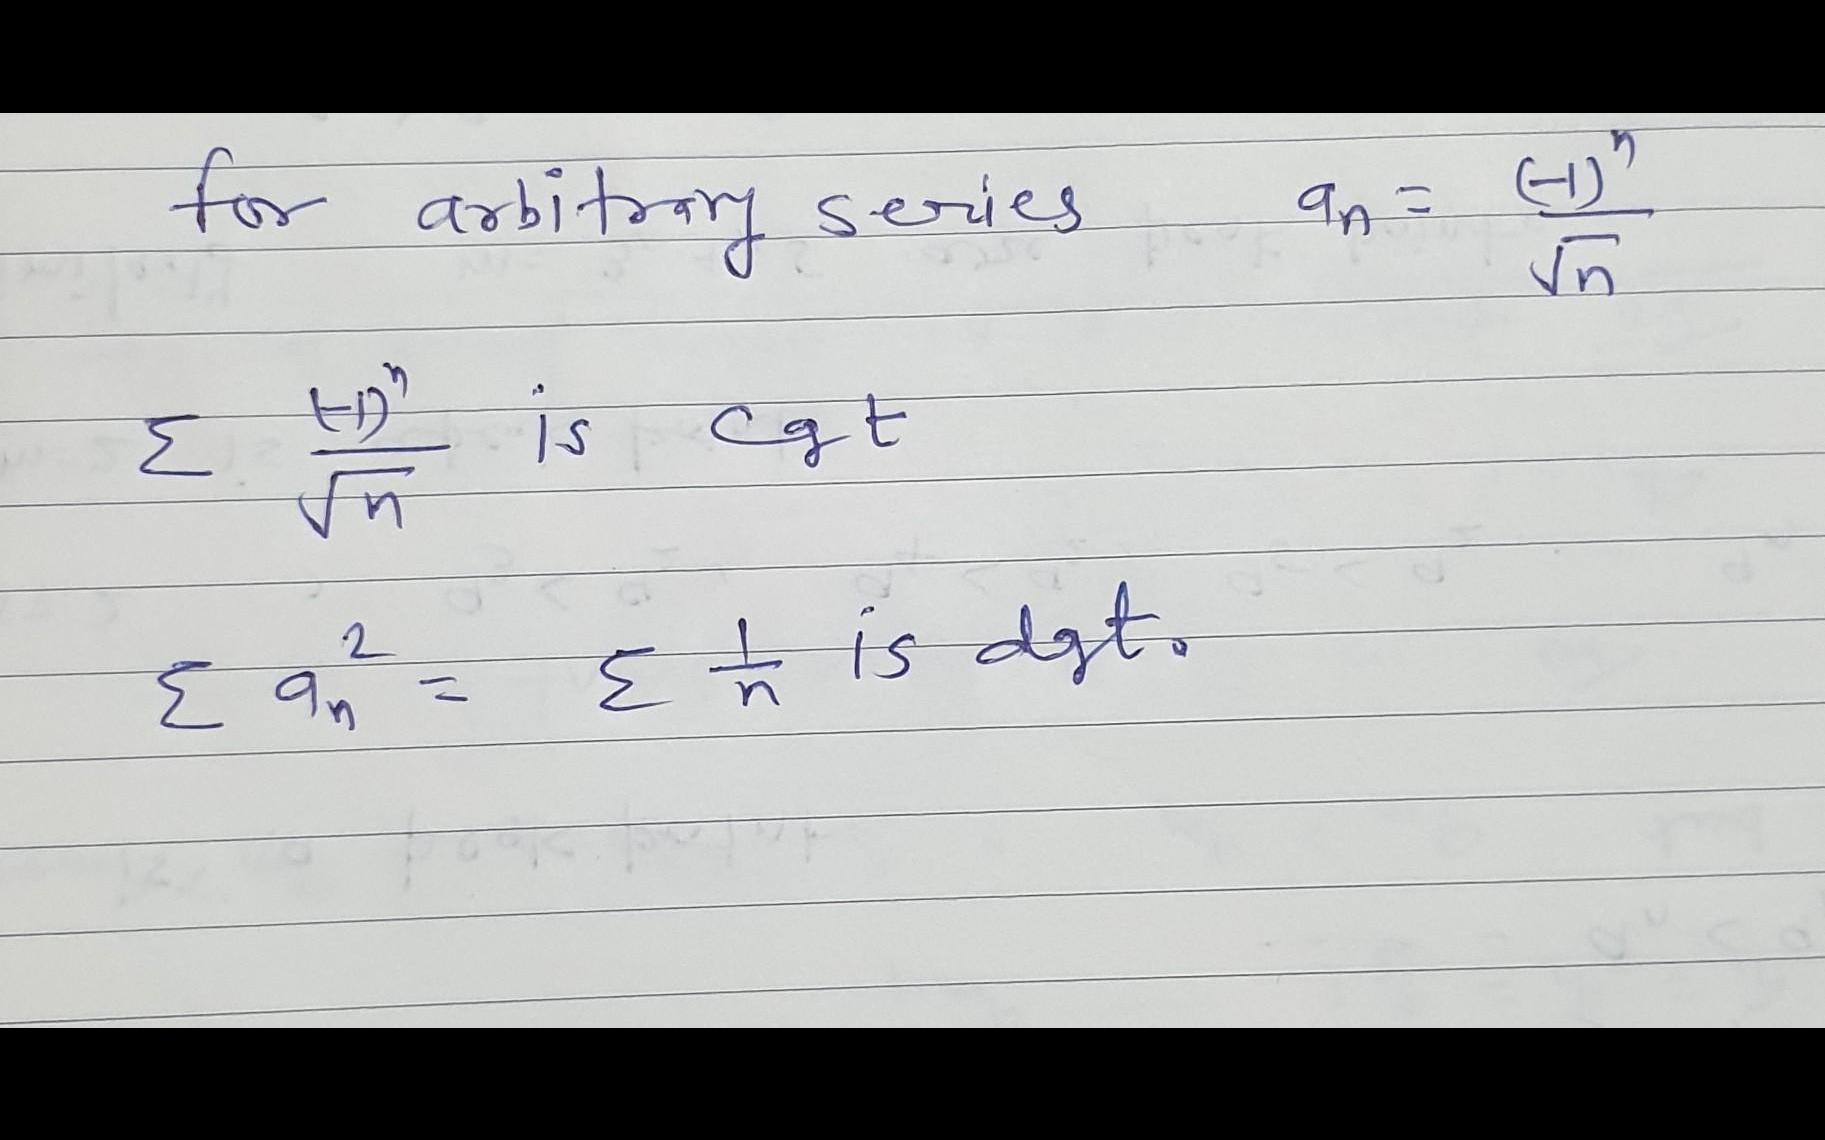 for arbitrary series aₙ = (-1)ⁿ/√n
Σ (-1)ⁿ/√n is cgt
Σ aₙ² = Σ 1/n is dgt.